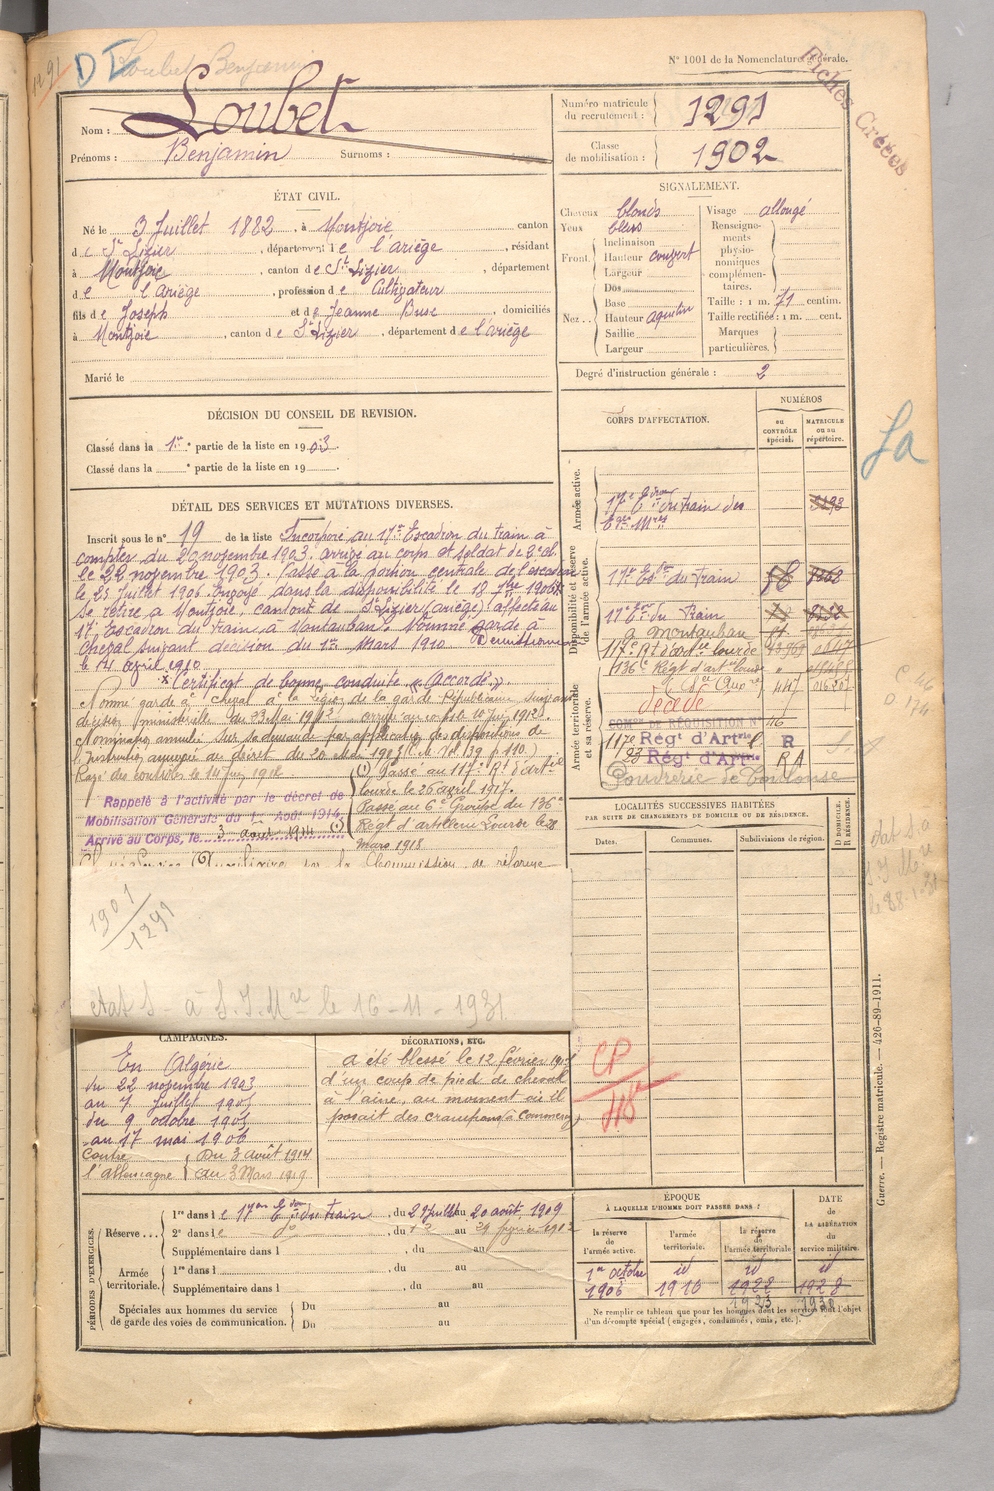 1291 DI Loubet Benjamin
N° 1001 de la Nomenclature générale.
Fiches Créées
Nom : Loubet
Prénoms : Benjamin Surnoms :
Numéro matricule du recrutement : 1291
Classe de mobilisation : 1902
ÉTAT CIVIL.
Né le 3 Juillet 1882, à Montjoie canton
de St Lizier, département de l'ariège, résidant
à Montjoie, canton de St Lizier, département
de l'Ariège, profession de Cultivateur
fils de Joseph et de Jeanne Buse, domiciliés
à Montjoie, canton de St Lizier, département de l'ariège
Marié le
SIGNALEMENT.
Cheveux blonds
Yeux bleus
Front. Inclinaison
Hauteur couvert
Largeur
Nez.. Dos
Base
Hauteur aquilin
Saillie
Largeur
Visage allongé
Renseignements physionomiques complémentaires.
Taille : 1 m. 71 centim.
Taille rectifiée : 1 m. cent.
Marques particulières.
Degré d'instruction générale : 2
DÉCISION DU CONSEIL DE REVISION.
Classé dans la 1re partie de la liste en 1903.
Classé dans la e partie de la liste en 19
DÉTAIL DES SERVICES ET MUTATIONS DIVERSES.
Inscrit sous le n° 19 de la liste Incorporé au 17e Escadron du train à
compter du 20 novembre 1903. arrivé au corps et soldat de 2e cl.
le 22 novembre 1903. Passé à la portion centrale de l'escadron
le 23 Juillet 1906. Envoyé dans la disponibilité le 18 7bre 1906 X
Se retire à Montjoie, canton de St Lizier (ariège) affecté au
17e Escadron du train, à Montauban. Nommé garde à
cheval suivant décision du 1er Mars 1910 Démissionné
le 14 april 1910
X Certificat de bonne conduite « Accordé ».
Nommé garde à cheval à la légion de la garde Républicaine suivant
décision ministérielle du 23 Mai 1912
Nomination annulée sur sa demande par application des dispositions de
l'instruction annexée au décret du 20 Mai 1903 (B. O. Vol. 139 p. 110.)
Rayé des contrôles le 14 juin 1912.
Rappelé à l'activité par le décret de
Mobilisation Générale du 1er Août 1914.
Arrivé au Corps, le 3 août 1914 (1)
(1) Passé au 117e Rt d'artie
lourde le 26 avril 1917.
Passé au 6e Groupe du 136e
Régt d'artillerie Lourde le 28
mars 1918
Commission de réforme
1901/1291
état S. à S.I. Mre le 16-11-1931
CORPS D'AFFECTATION.
NUMÉROS
au CONTRÔLE spécial.
MATRICULE ou au répertoire.
Armée active.
17e Eron du train des
Eqes Mres
Disponibilité et réserve de l'armée active.
17e Eson du train
17e Eon du Train
à Montauban
117e Rt d'artie lourde
136e Régt d'art lourde
447
Armée territoriale et sa réserve.
Décédé
COMon DE RÉQUISITION N° 46
117e Régt d'Artie l. R
23 Régt d'Artie RA
Poudrerie de Toulouse
LOCALITÉS SUCCESSIVES HABITÉES
PAR SUITE DE CHANGEMENTS DE DOMICILE OU DE RÉSIDENCE.
Dates. Communes. Subdivisions de région. D DOMICILE. R RÉSIDENCE.
CP
Sa
état S. à
S I Mre
le 28-1-31
CAMPAGNES.
En Algérie
du 22 novembre 1903
au 7 Juillet 1905
du 9 octobre 1905
au 17 mai 1906
Contre l'allemagne Du 3 août 1914
au 3 Mars 1919
DÉCORATIONS, ETC.
A été blessé le 12 février 1915
d'un coup de pied de cheval
à l'aine, au moment où il
posait des crampons (à Commercy)
PÉRIODES D'EXERCICES.
Réserve... 1re dans le 17me Eson du train, du 29 juillet au 20 août 1909
2e dans le do, du au février 1912
Supplémentaire dans l , du au
Armée territoriale. 1re dans l , du au
Supplémentaire dans l , du au
Spéciales aux hommes du service de garde des voies de communication. Du au
Du au
ÉPOQUE
À LAQUELLE L'HOMME DOIT PASSER DANS :
la réserve de l'armée active. 1er octobre 1906
l'armée territoriale. id 1916
la réserve de l'armée territoriale id 1922 1923
DATE de LA LIBÉRATION du service militaire. id 1928 1930
Ne remplir ce tableau que pour les hommes dont les services font l'objet
d'un décompte spécial (engagés, condamnés, omis, etc.).
Guerre. — Registre matricule. — 426-89-1911.